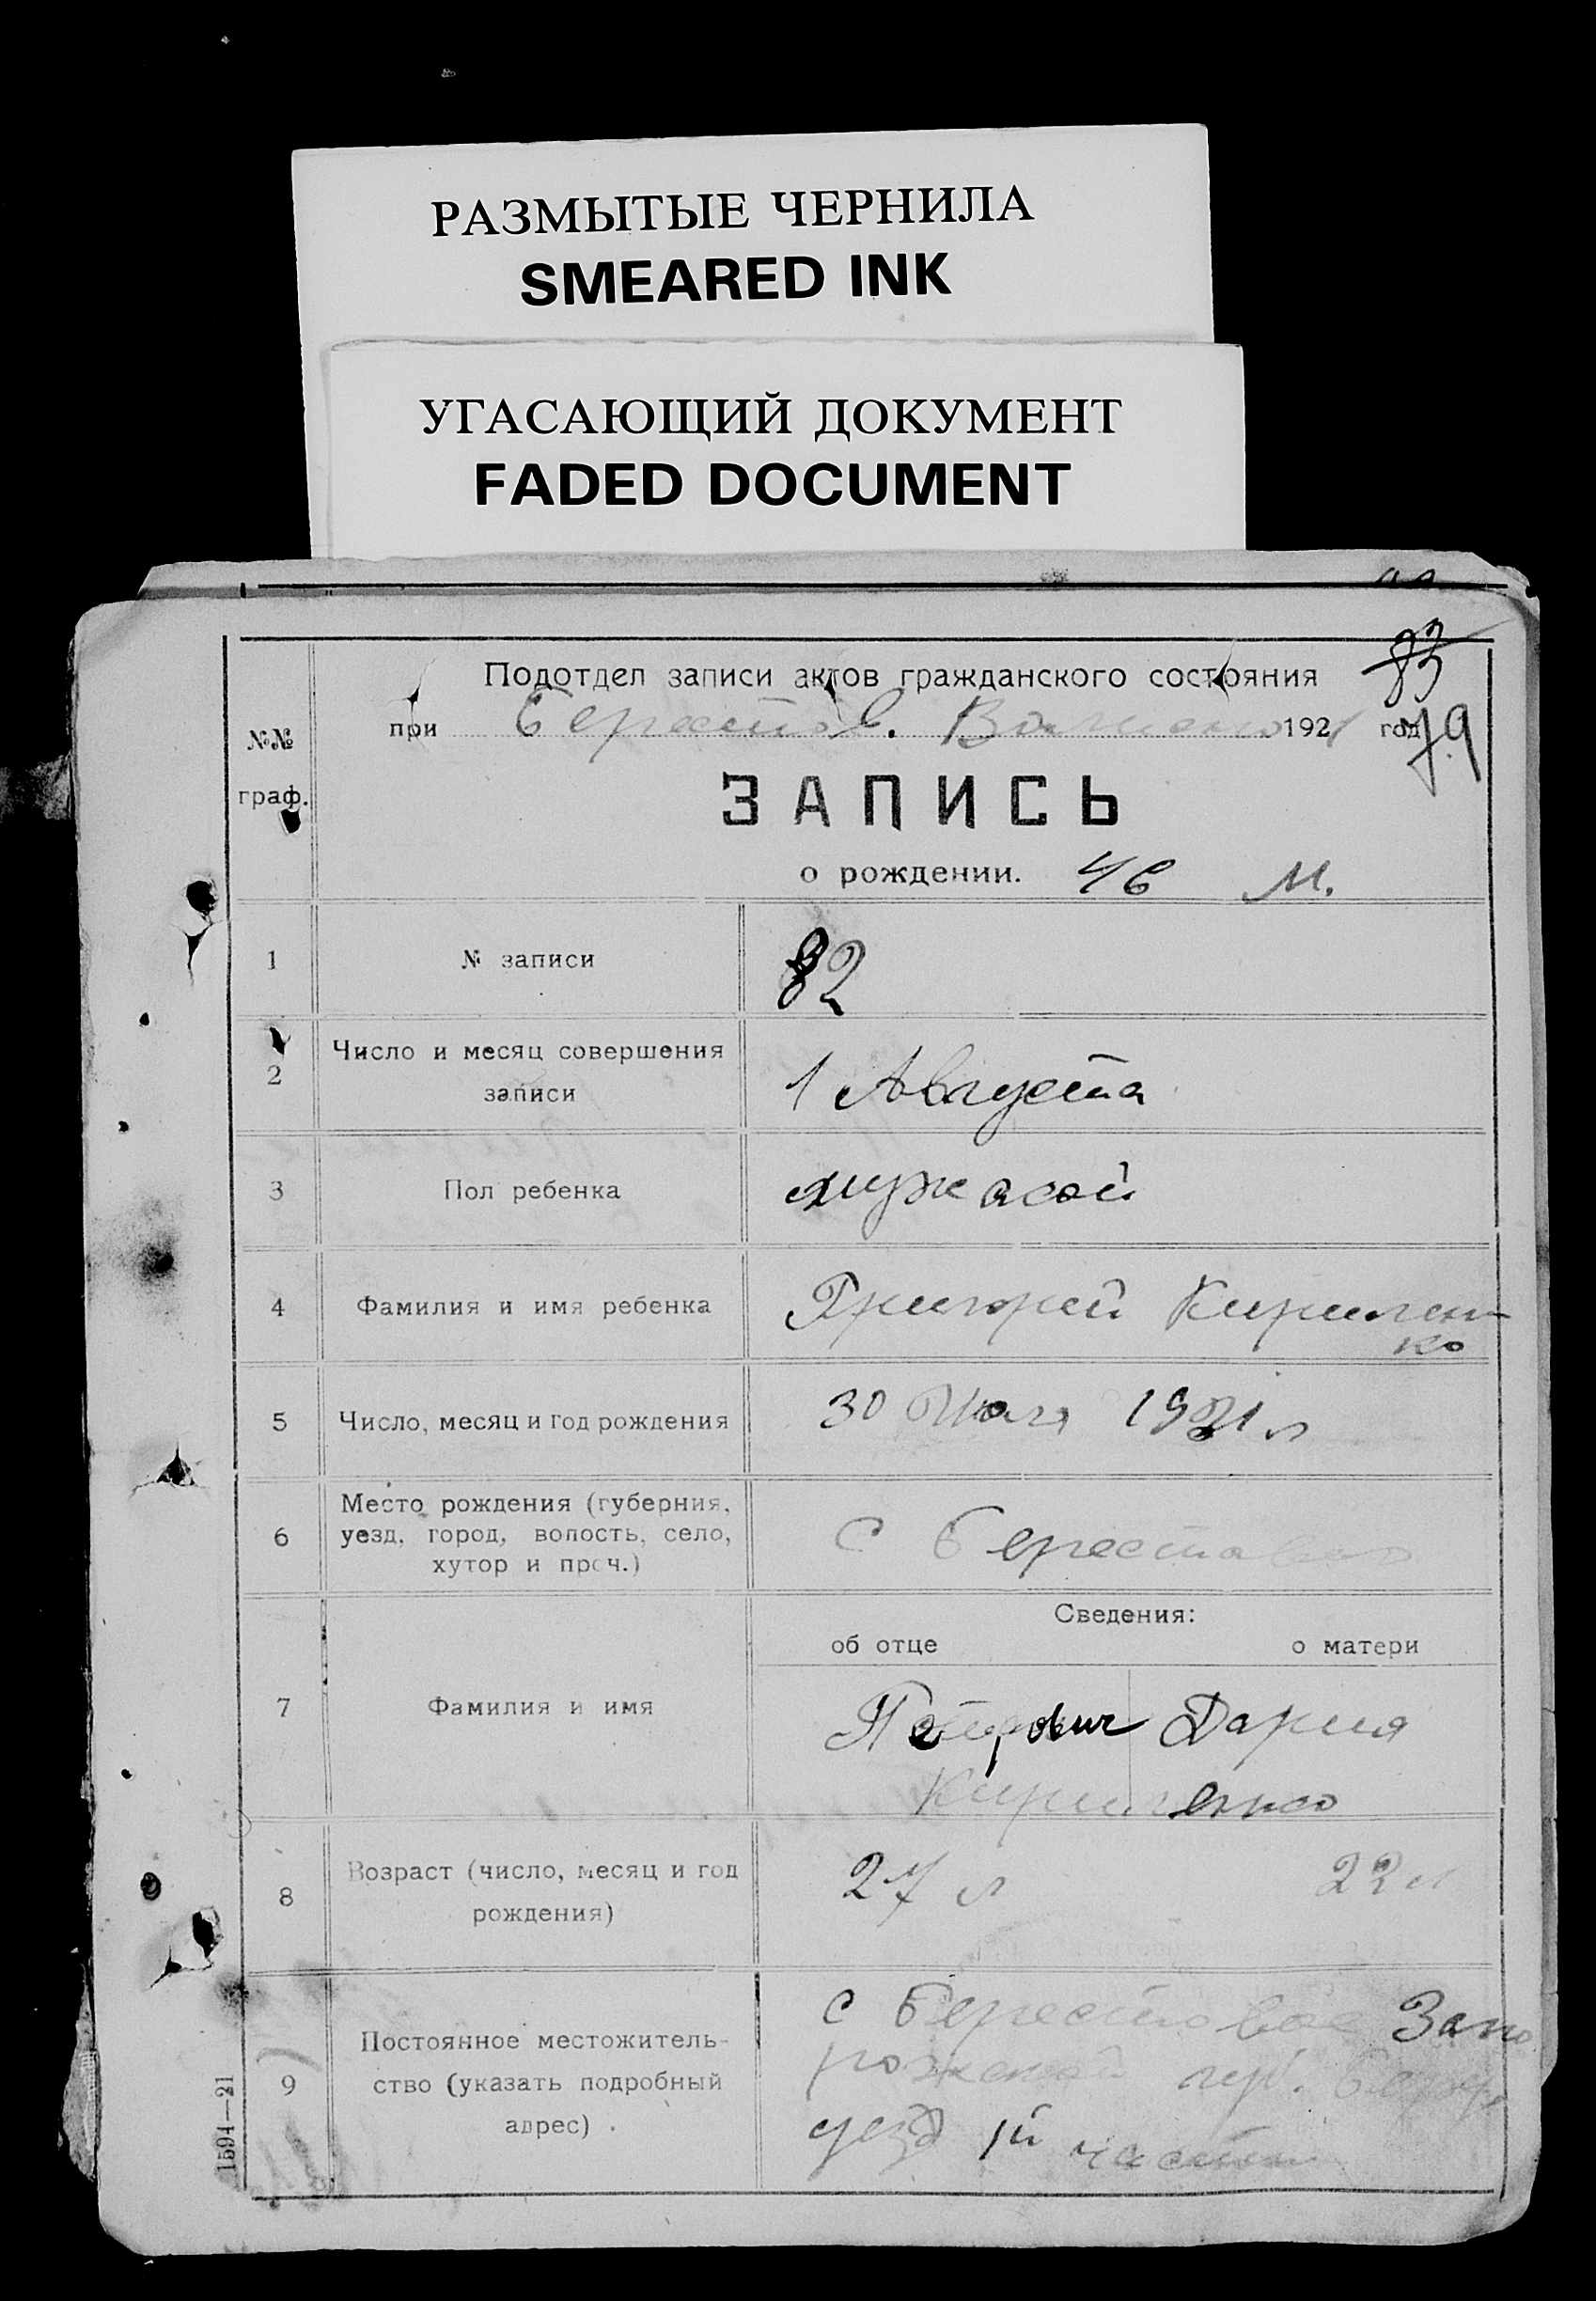 РАЗМЫТЫЕ ЧЕРНИЛА
SMEARED INK
УГАСАЮЩИЙ ДОКУМЕНТ
FADED DOCUMENT
83
Подотдел записи актов гражданского состояния
при Берестов. 1921 год 79
№№
граф.
ЗАПИСЬ
о рождении. 46 м.
1 № записи 82
2 Число и месяц совершения
записи
1 Августа
3 Пол ребенка мужской
4 Фамилия и имя ребенка Григорий Кирилен
ко
5 Число, месяц и год рождения 30 Июля 1921 г
6 Место рождения (губерния,
уезд, город, волость, село,
хутор и проч.)
С Берестовое
Сведения:
об отце о матери
7 Фамилия и имя
Петрович Дария
Кириленко
8 Возраст (число, месяц и год
рождения)
27 л 22 л
9 Постоянное местожитель-
ство (указать подробный
адрес)
с Берестовое Запо
рожской губ.
уезд 1й части
1594—21